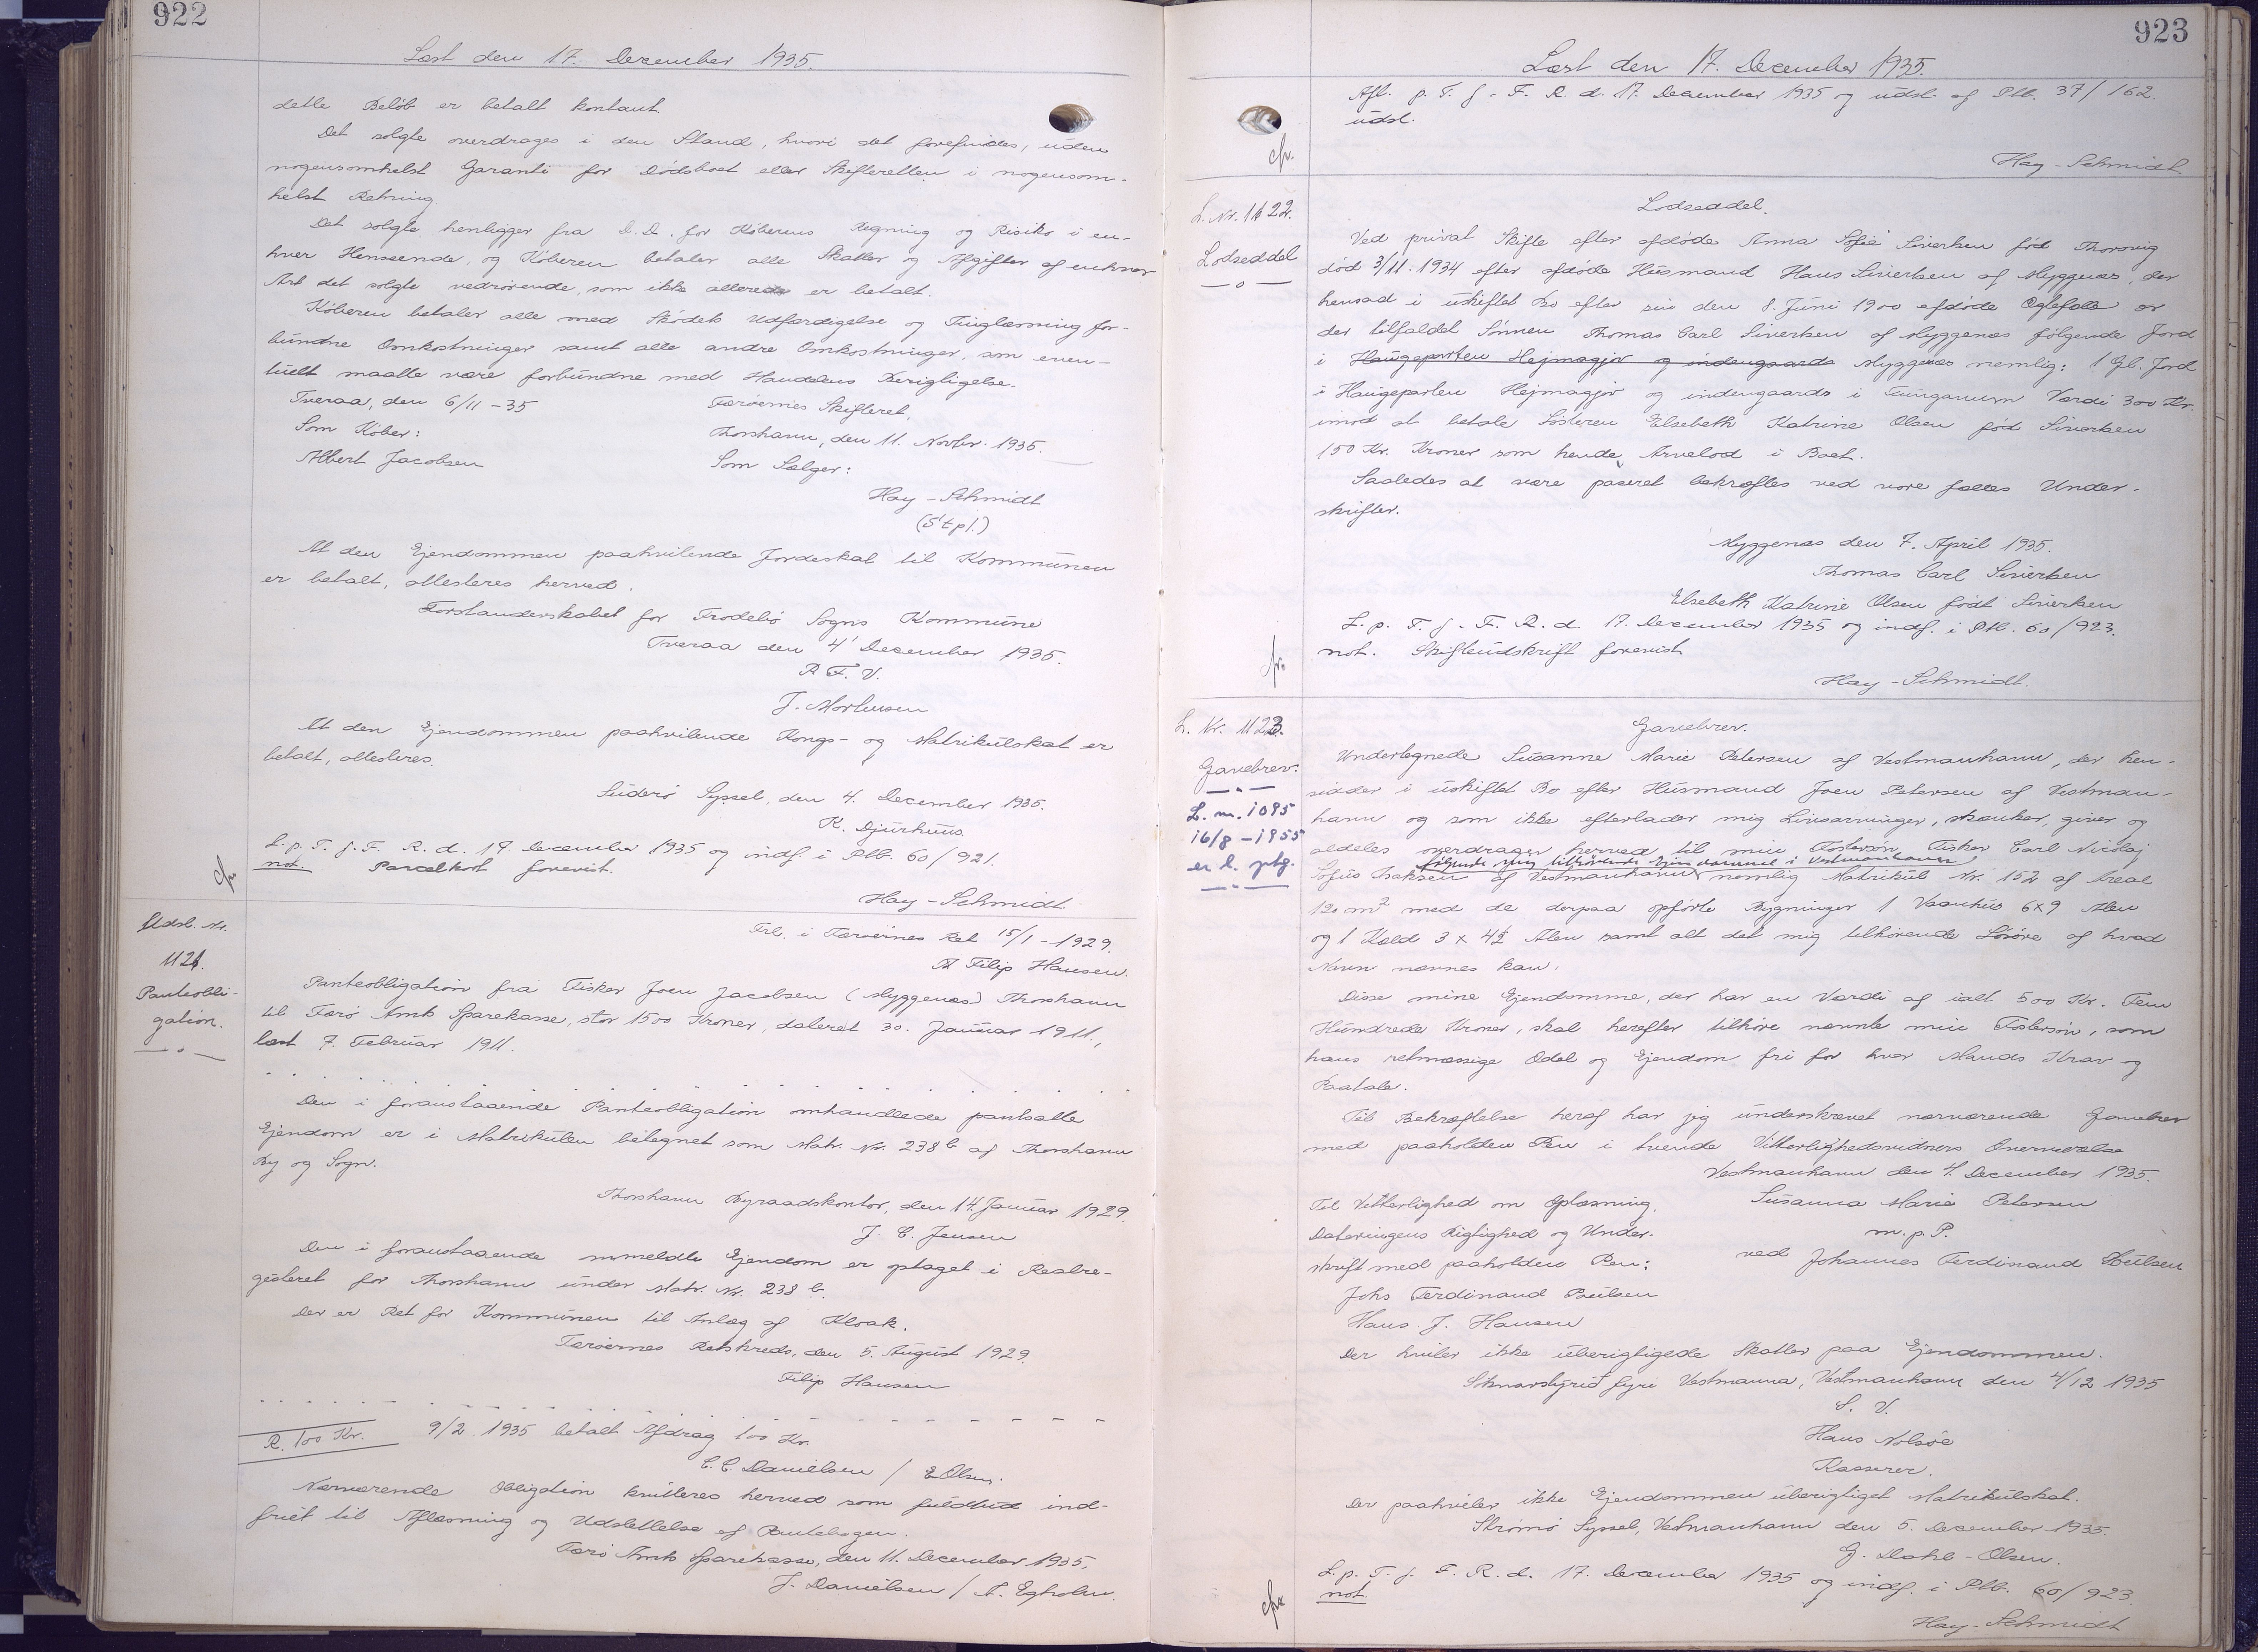 922
Læst den 17. December 1935.
dette Beløb er betalt kontant.
Det solgte overdrages i den Stand, hvori det forefindes, uden
nogensomhelst Garanti for Dødsboet eller Skifteretten i nogensom-
helst Retning.
Det solgte henligger fra D.D. for Køberens Regning og Risiko i en-
hver Henseende, og Køberen betaler alle Skatter og Afgifter af enhver
Art det solgte vedrørende, som ikke allerede er betalt.
Køberen betaler alle med Skødets Udfærdigelse og Tinglæsning for-
bundne Omkostninger samt alle andre Omkostninger, som even-
tuelt maatte være forbundne med Handelens Berigtigelse.
Tveraa, den 6/11-35
Som Køber:
Albert Jacobsen
Færøernes Skifteret,
Thorshavn, den 11. Novbr. 1935.
Som Sælger:
Hay-Schmidt
(Stpl.)
At den Ejendommen paahvilende Jordeskat til Kommunen
er betalt, attesteres herved.
Forstanderskabet for Frodebø Sogns Kommune
Tveraa den 4' December 1935.
P. F. V.
J. Mortensen
At den Ejendommen paahvilende Kongs- og Matrikulskat er
betalt, attesteres.
Suderø Syssel, den 4. December 1935.
K. Djurhuus.
L. p. T. f. F. R. d. 17. December 1935 og indf. i Ptb. 60/921.
not. Parcelkort forevist.
Hay-Schmidt
Udsl. Nr.
1121.
Panteobli-
gation.
Frl. i Færøernes Ret 15/1-1929.
Filip Hansen.
Panteobligation fra Fisker Joen Jacobsen (Myggenæs) Thorshavn
til Færø Amts Sparekasse, stor 1500 Kroner, dateret 30. Januar 1911,
læst 7. Februar 1911.
Den i foranstaaende Panteobligation omhandlede pantsatte
Ejendom er i Matrikulen betegnet som Matr. Nr. 238 b af Thorshavn
By og Sogn.
Thorshavn Byraadskontor, den 14. Januar 1929.
J. C. Jensen
Den i foranstaaende ommeldte Ejendom er optaget i Realre-
gisteret for Thorshavn under Matr. Nr. 238 b.
Der er Ret for Kommunen til Anlæg af Kloak.
Færøernes Retskreds, den 5. August 1929.
Filip Hansen
R. 100 Kr. 9/2 1935 betalt Afdrag 100 Kr.
C. C. Danielsen / E Olsen.
Nærværende Obligation kvitteres herved som fuldtud ind-
friet til Aflæsning og Udslettelse af Pantebogen.
Færø Amts Sparekasse, den 11. December 1935.
J. Danielsen / A. Egholm.
923
Læst den 17. December 1935.
Afl. p. T. f. F. R. d. 17. December 1935 og udsl. af Ptb. 37/162.
udsl.
Hay-Schmidt
L. Nr. 1122.
Lodseddel
Lodseddel.
Ved privat Skifte efter afdøde Anna Sofie Sivertsen fød Thorsvig
død 3/11. 1934 efter afdøde Husmand Hans Sivertsen af Myggenæs, der
hensad i uskiftet Bo efter sin den 8. Juni 1900 afdøde Ægtefælle er
der tilfaldet Sønnen Thomas Carl Sivertsen af Myggenæs følgende Jord
i Haugeparten Hejmagjor og indengaards Myggenæs nemlig: 1 Gl. Jord
i Haugeparten Hejmagjor og indengaards i Værdi 300 Kr.
imod at betale Søsteren Elsebeth Katrine Olsen fød Sivertsen
150 Kr. Kroner som hendes Arvelod i Boet.
Saaledes at være passeret bekræftes ved vore fælles Under-
skrifter.
Myggenæs den 7. April 1935.
Thomas Carl Sivertsen
Elsebeth Katrine Olsen født Sivertsen
L. p. T. f. F. R. d. 17. December 1935 og indf. i Ptb. 60/923.
not. Skifteudskrift forevist
Hay-Schmidt.
L. Nr. 1123.
Gavebrev.
L. nr. 1095
16/8-1955
er l. ptg.
Gavebrev.
Undertegnede Susanne Marie Petersen af Vestmanhavn, der hen-
sidder i uskiftet Bo efter Husmand Joen Petersen af Vestman-
havn og som ikke efterlader mig Livsarvinger, skænker, giver og
aldeles overdrager herved til min Fostersøn Fisker Carl Nicolaj
følgende mig tilhørende Ejendomme i Vestmanhavn
Sofus Isaksen af Vestmanhavn nemlig Matrikul Nr. 152 af Areal
120 m² med de derpaa opførte Bygninger 1 Vaanhus 6x9 Alen
og 1 Kæld 3 x 4½ Alen samt alt det mig tilhørende Løsøre af hvad
Navn nævnes kan.
Disse mine Ejendomme, der har en Værdi af ialt 500 Kr. Fem
Hundrede Kroner, skal herefter tilhøre nævnte min Fostersøn, som
hans retmæssige Odel og Ejendom fri for hver Mands Krav og
Paatale.
Til Bekræftelse heraf har jeg underskrevet nærværende Gavebrev
med paaholden Pen i tvende Vitterlighedsvidners Overværelse
Vestmanhavn den 4. December 1935.
Susanna Marie Petersen
m. p. P.
ved Johannes Ferdinand Poulsen
Til Vitterlighed om Oplæsning,
Dateringens Rigtighed og Under-
skrift med paaholden Pen:
Johs Ferdinand Poulsen
Hans J. Hansen
Der hviler ikke uberigtigede Skatter paa Ejendommen.
Sknarstyrið fyri Vestmanna, Vestmanhavn den 4/12 1935
S. V.
Hans Nolsøe
Kasserer.
Der paahviler ikke Ejendommen uberigtiget Matrikulskat.
Strømø Syssel, Vestmanhavn den 5. December 1935.
G. Dahl-Olsen.
L. p. T. f. F. R. d. 17. December 1935 og indf. i Ptb. 60/923.
not.
Hay-Schmidt